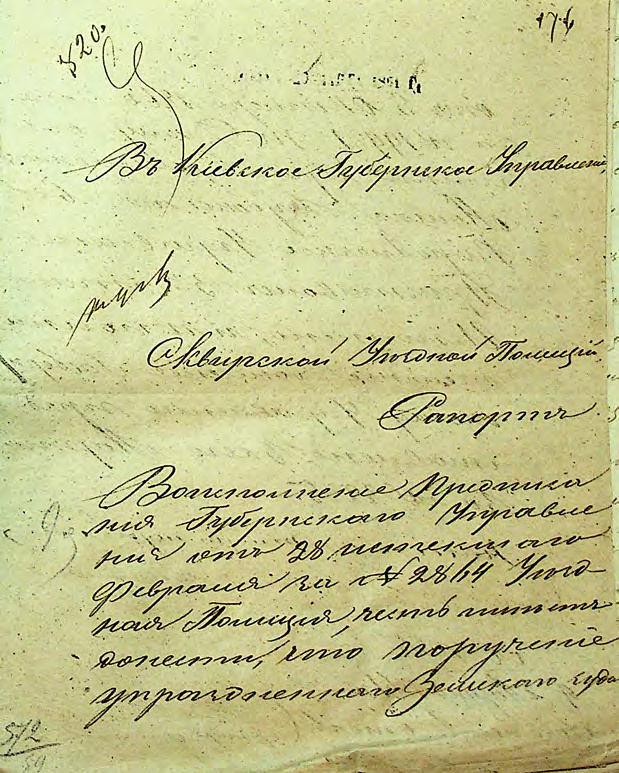 820.
176
Въ Киевское Губернское Управление,
Сквирской Уѣздной Полиціи
Рапортъ
Воисполненіе Предписа
нія Губернскаго Управле
нія отъ 28 истекшаго
Февраля за № 2864 Уѣзд-
ная Полиція, честь имѣетъ
донести, что, порученіе
упраздненнаго Земскаго Суда
572
59